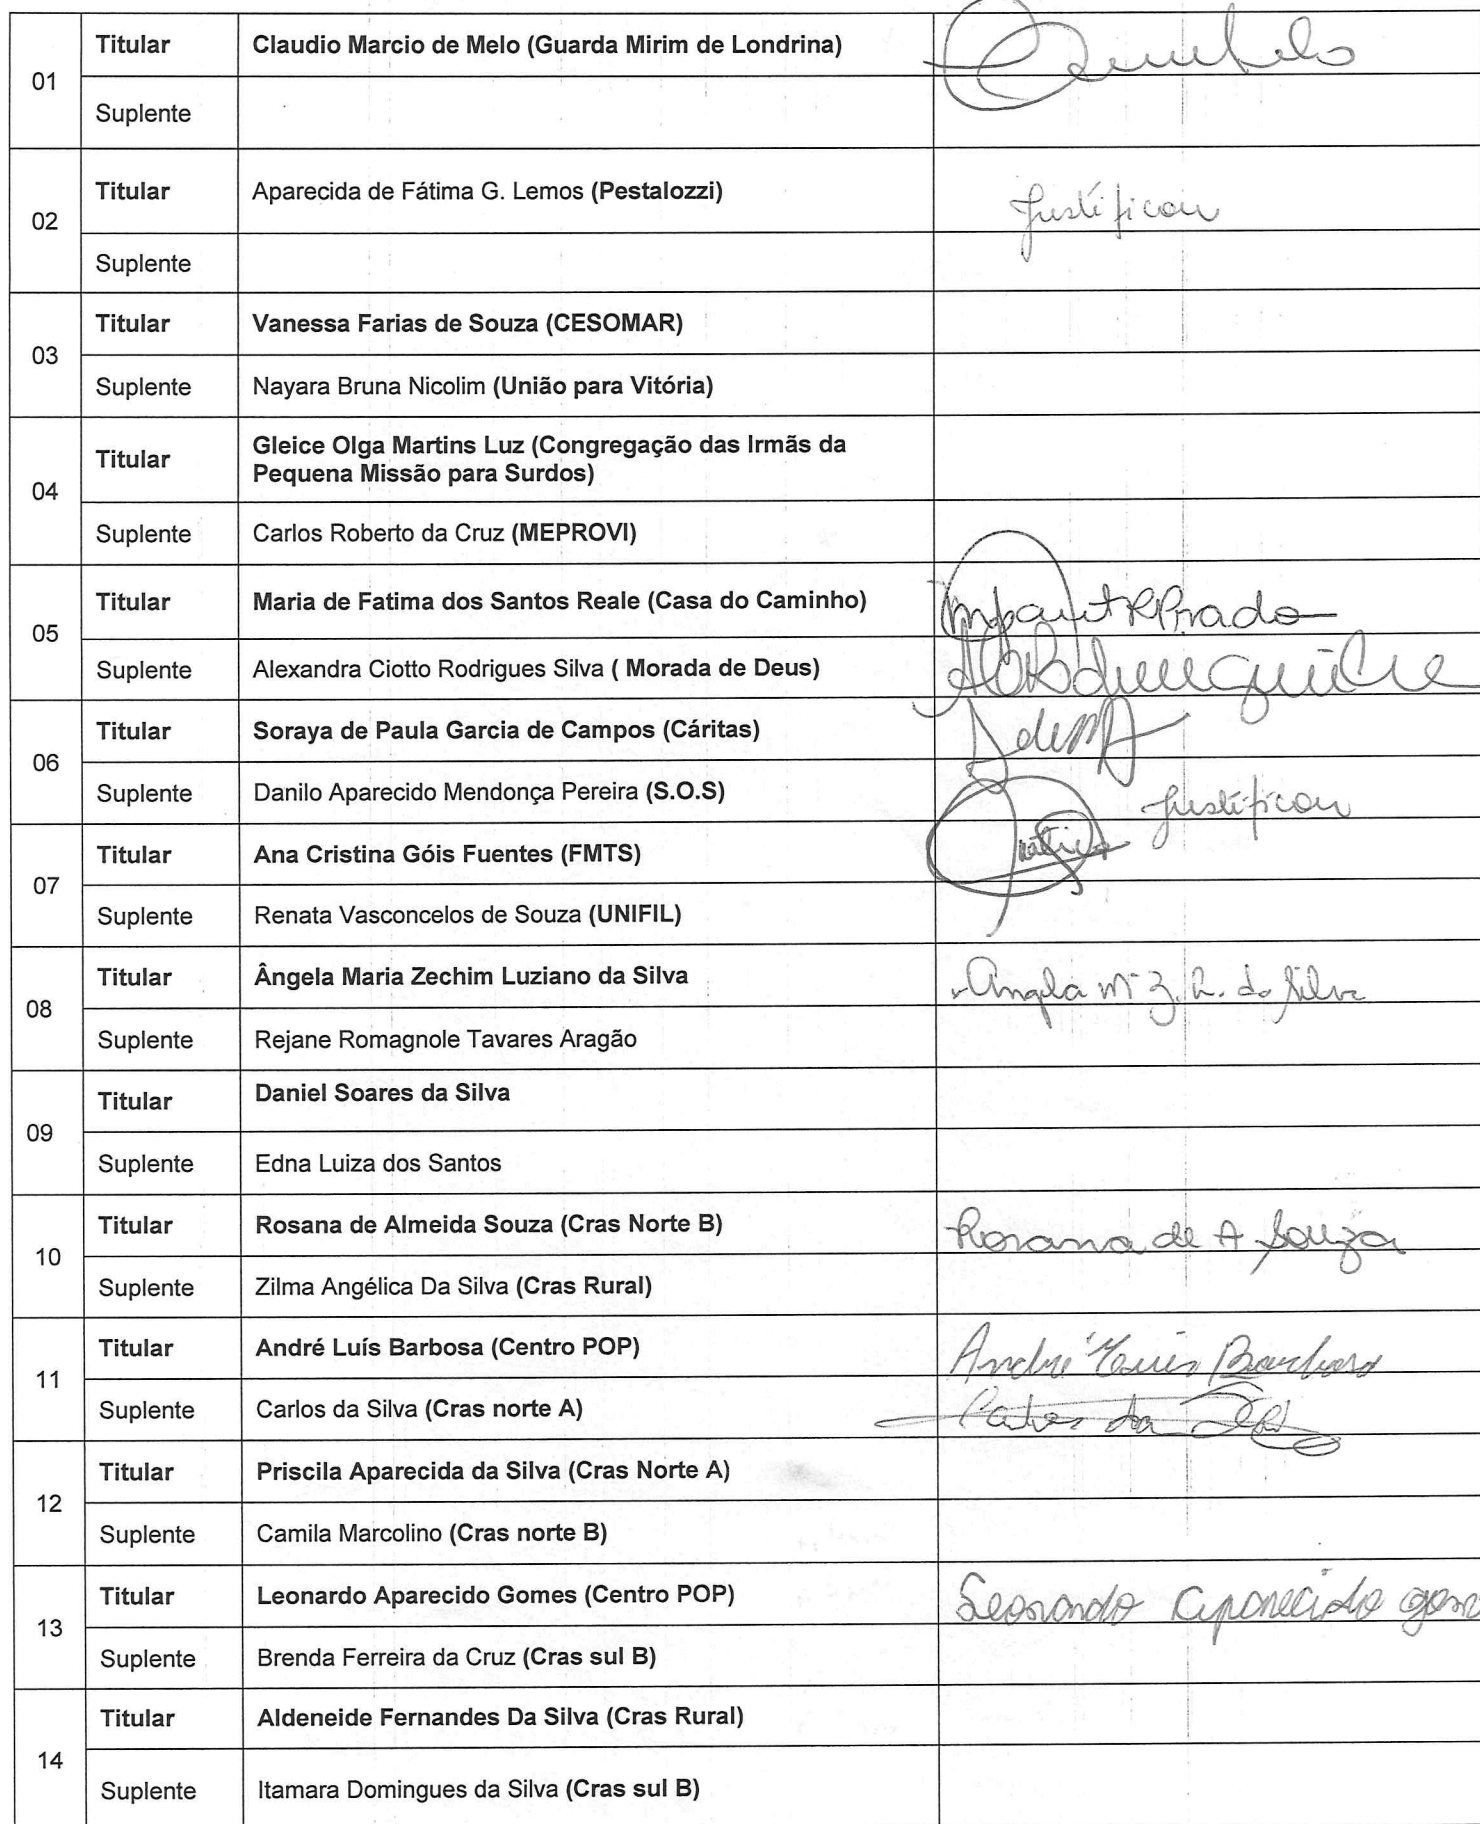 01
Titular Claudio Marcio de Melo (Guarda Mirim de Londrina)
Suplente
02
Titular Aparecida de Fátima G. Lemos (Pestalozzi) Justificou
Suplente
03
Titular Vanessa Farias de Souza (CESOMAR)
Suplente Nayara Bruna Nicolim (União para Vitória)
04
Titular Gleice Olga Martins Luz (Congregação das Irmãs da
Pequena Missão para Surdos)
Suplente Carlos Roberto da Cruz (MEPROVI)
05
Titular Maria de Fatima dos Santos Reale (Casa do Caminho)
Suplente Alexandra Ciotto Rodrigues Silva ( Morada de Deus)
06
Titular Soraya de Paula Garcia de Campos (Cáritas)
Suplente Danilo Aparecido Mendonça Pereira (S.O.S) Justificou
07
Titular Ana Cristina Góis Fuentes (FMTS)
Suplente Renata Vasconcelos de Souza (UNIFIL)
08
Titular Ângela Maria Zechim Luziano da Silva Angela Mª Z. L. da Silva
Suplente Rejane Romagnole Tavares Aragão
09
Titular Daniel Soares da Silva
Suplente Edna Luiza dos Santos
10
Titular Rosana de Almeida Souza (Cras Norte B) Rosana de A Souza
Suplente Zilma Angélica Da Silva (Cras Rural)
11
Titular André Luís Barbosa (Centro POP) André Luis Barbosa
Suplente Carlos da Silva (Cras norte A) Carlos da
12
Titular Priscila Aparecida da Silva (Cras Norte A)
Suplente Camila Marcolino (Cras norte B)
13
Titular Leonardo Aparecido Gomes (Centro POP) Leonardo Aparecido
Suplente Brenda Ferreira da Cruz (Cras sul B)
14
Titular Aldeneide Fernandes Da Silva (Cras Rural)
Suplente Itamara Domingues da Silva (Cras sul B)